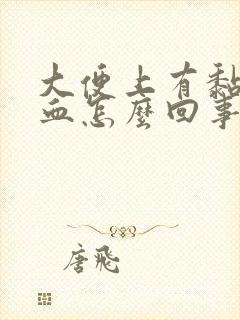 大便上有黏
血怎麼回事
唐飛